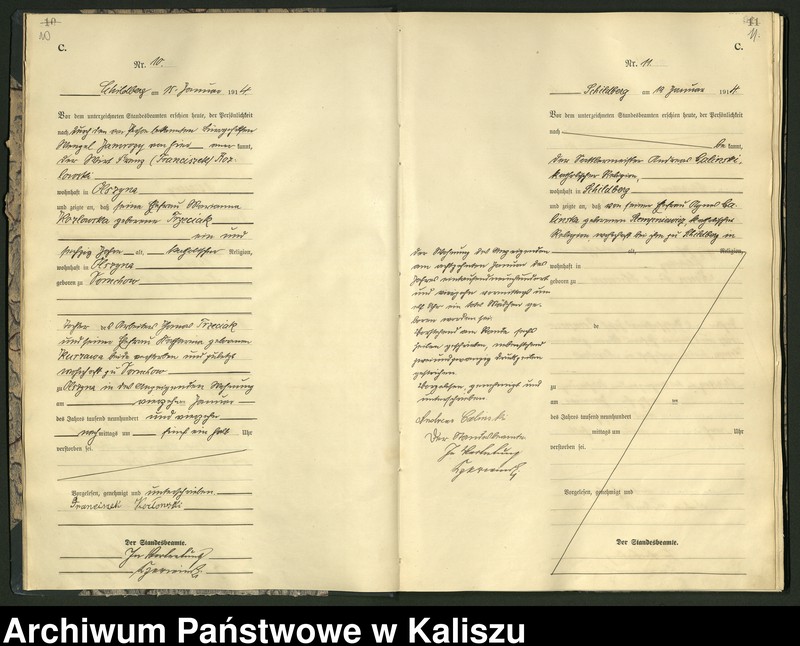 10
10
C.
Nr. 10.
Schildberg am 15. Januar 1914
Vor dem unterzeichneten Standesbeamten erschien heute, der Persönlichkeit
nach durch den von Person bekannten
Wenzel von hier kannt,
der Wirt Franz (Franciszek) Koz-
lowski
wohnhaft in Olszyna
und zeigte an, daß seine Ehefrau Marianna
Kozlowska geborene Trzeciak
ein und
sechzig Jahre alt, katholischer Religion,
wohnhaft in Olszyna
geboren zu
Tochter des Arbeiters Thomas Trzeciak
und seiner Ehefrau Katharina geborenen
Kurzawa beide verstorben und zuletzt
wohnhaft zu
zu Olszyna in des Anzeigenden Wohnung
am vierzehnten Januar
des Jahres tausend neunhundert und vierzehn
nachmittags um fünf ein halb Uhr
verstorben sei.
Vorgelesen, genehmigt und unterschrieben
Franciszek Kozlowski
Der Standesbeamte.
In Vertretung
11
11.
C.
Nr. 11.
Schildberg am 19. Januar 1914
Vor dem unterzeichneten Standesbeamten erschien heute, der Persönlichkeit
nach bekannt,
der Sattlermeister Andreas Galinski,
katholischer Religion,
wohnhaft in Schildberg
und zeigte an, daß von seiner Ehefrau Agnes Ga-
linska geborenen katholischer
Religion, wohnhaft bei ihm zu Schildberg in
alt, Religion,
der Wohnung des Anzeigenden
am achtzehnten Januar des
Jahres eintausendneunhundert
und vierzehn vormittags um
elf Uhr ein totes Mädchen ge-
boren worden sei.
Vorstehend am Rande sechs
Zeilen geschrieben, nebenstehend
zweiundzwanzig Druckzeilen
gestrichen.
Vorgelesen, genehmigt und
unterschrieben
Andreas Galinski
Der Standesbeamte.
In Vertretung
wohnhaft in
geboren zu
de
zu
am
des Jahres tausend neunhundert
mittags um Uhr
verstorben sei.
Vorgelesen, genehmigt und
Der Standesbeamte.
Archiwum Państwowe w Kaliszu